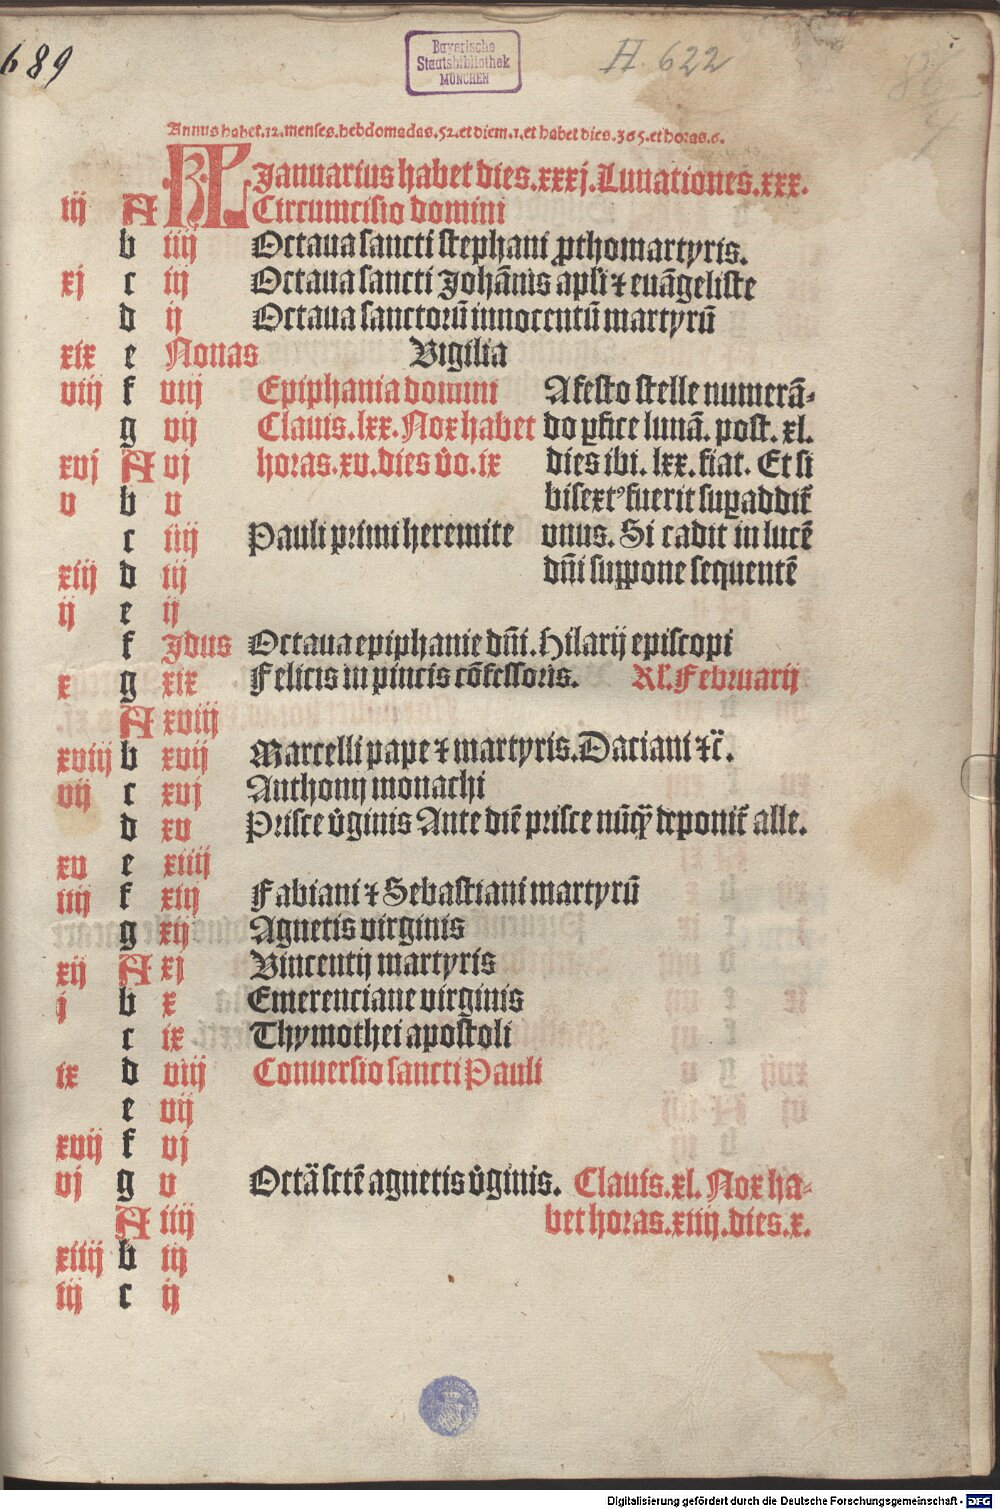 689
Bayerische
Staatsbibliothek
MÜNCHEN
H. 622
Annus habet .12. menses. hebdomadas .52. et diem .1. et habet dies .365. et horas .6.
KL Januarius habet dies .xxxj. Lunationes .xxx.
iij A Circumcisio domini
b iiij Octaua sancti stephani ꝓthomartyris.
xj c iij Octaua sancti Johānis apli ⁊ euāgeliste
d ij Octaua sanctorū innocentū martyrū
xix e Nonas Vigilia
viij f viij Epiphania domini A festo stelle numerā⸗
g vij Clauis .lxx. Nox habet do ꝑfice lunā. post. xl.
xvj A vj horas .xv. dies v̊o .ix dies ibi .lxx. fiat. Et si
v b v bisext᾽ fuerit suꝑaddit᷑
c iiij Pauli primi heremite vnus. Si cadit in lucē
xiij d iij dn̄i suppone sequentē
ij e ij
f Jdus Octaua epiphanie dn̄i. Hilarij episcopi
x g xix Felicis in pincis cōfessoris. Kl. Februarij
A xviij
xviij b xvij Marcelli pape ⁊ martyris. Daciani ⁊c̄.
vij c xvj Anthonij monachi
d xv Prisce v̊ginis Ante diē prisce nūqꝫ deponit᷑ alle.
xv e xiiij
iiij f xiij Fabiani ⁊ Sebastiani martyrū
g xij Agnetis virginis
xij A xj Vincentij martyris
j b x Emerenciane virginis
c ix Thymothei apostoli
ix d viij Conuersio sancti Pauli
e vij
xvij f vj
vj g v Octā sctē agnetis v̊ginis. Clauis .xl. Nox ha⸗
A iiij bet horas .xiiij. dies .x.
xiiij b iij
iij c ij
Digitalisierung gefördert durch die Deutsche Forschungsgemeinschaft - DFG